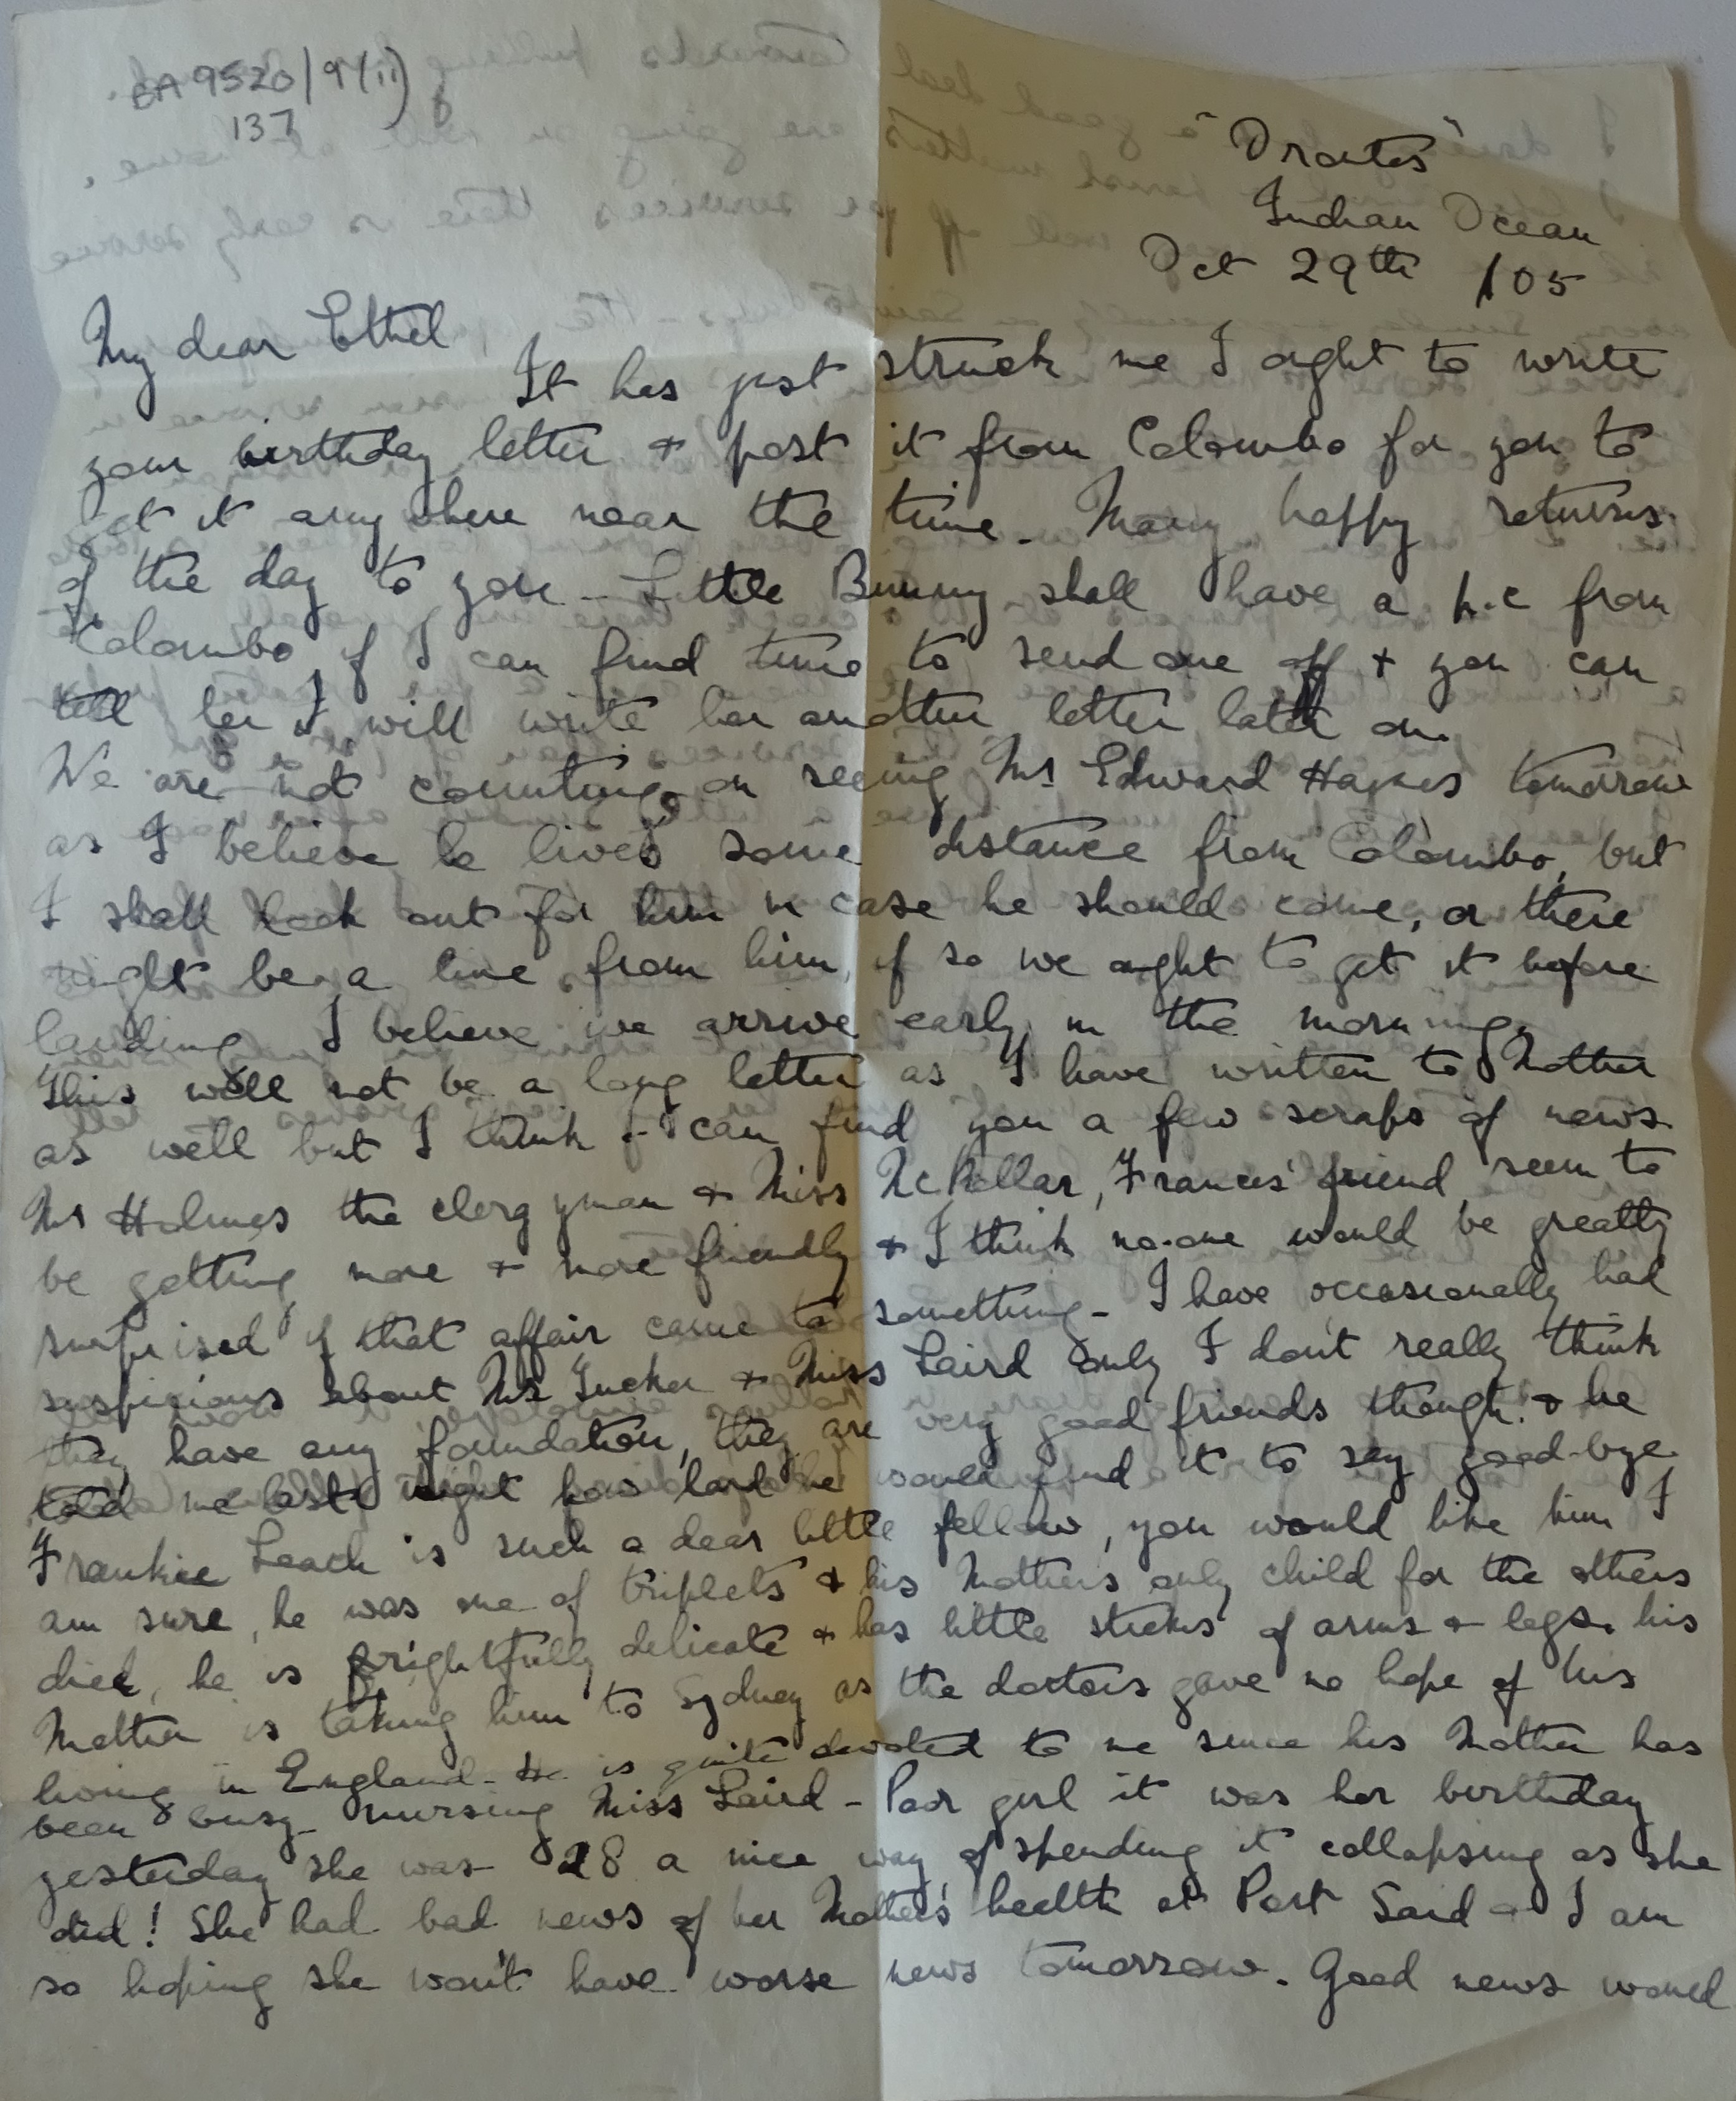 BA 9520/9(ii)
137
"Orontes"
Indian Ocean
Oct 29th /05
My dear Ethel
It has just struck me I ought to write
your birthday letter & post it from Colombo for you to
get it any where near the time. Many happy returns
of the day to you - Little Bunny shall have a p.c from
Colombo if I can find time to send one off & you can
tell her I will write her another letter later on.
We are not counting on seeing Mr Edward Haynes tomorrow
as I believe he lives some distance from Colombo, but
I shall look out for him in case he should come, or there
might be a line from him, if so we ought to get it before
landing I believe we arrive early in the morning.
This will not be a long letter as I have written to Mother
as well but I think I can find you a few scraps of news.
Mr Holmes the clergyman & Miss McKellar, Frances' friend, seem to
be getting more & more friendly & I think no-one would be greatly
surprised if that affair came to something - I have occasionally had
suspicions about Mr Tucker & Miss Laird only I don't really think
they have any foundation, they are very good friends though & he
told me last night how hard he would find it to say good-bye.
Frankie Leach is such a dear little fellow, you would like him I
am sure, he was one of triplets & his Mother's only child for the others
died, he is frightfully delicate & has little sticks of arms & legs. his
Mother is taking him to Sydney as the doctors gave no hope of his
living in England - He is quite devoted to me since his Mother has
been busy nursing Miss Laird - Poor girl it was her birthday
yesterday she was 28 a nice way of spending it collapsing as she
did! She had bad news of her Mother's health at Port Said & I am
so hoping she won't have worse news tomorrow. Good news would